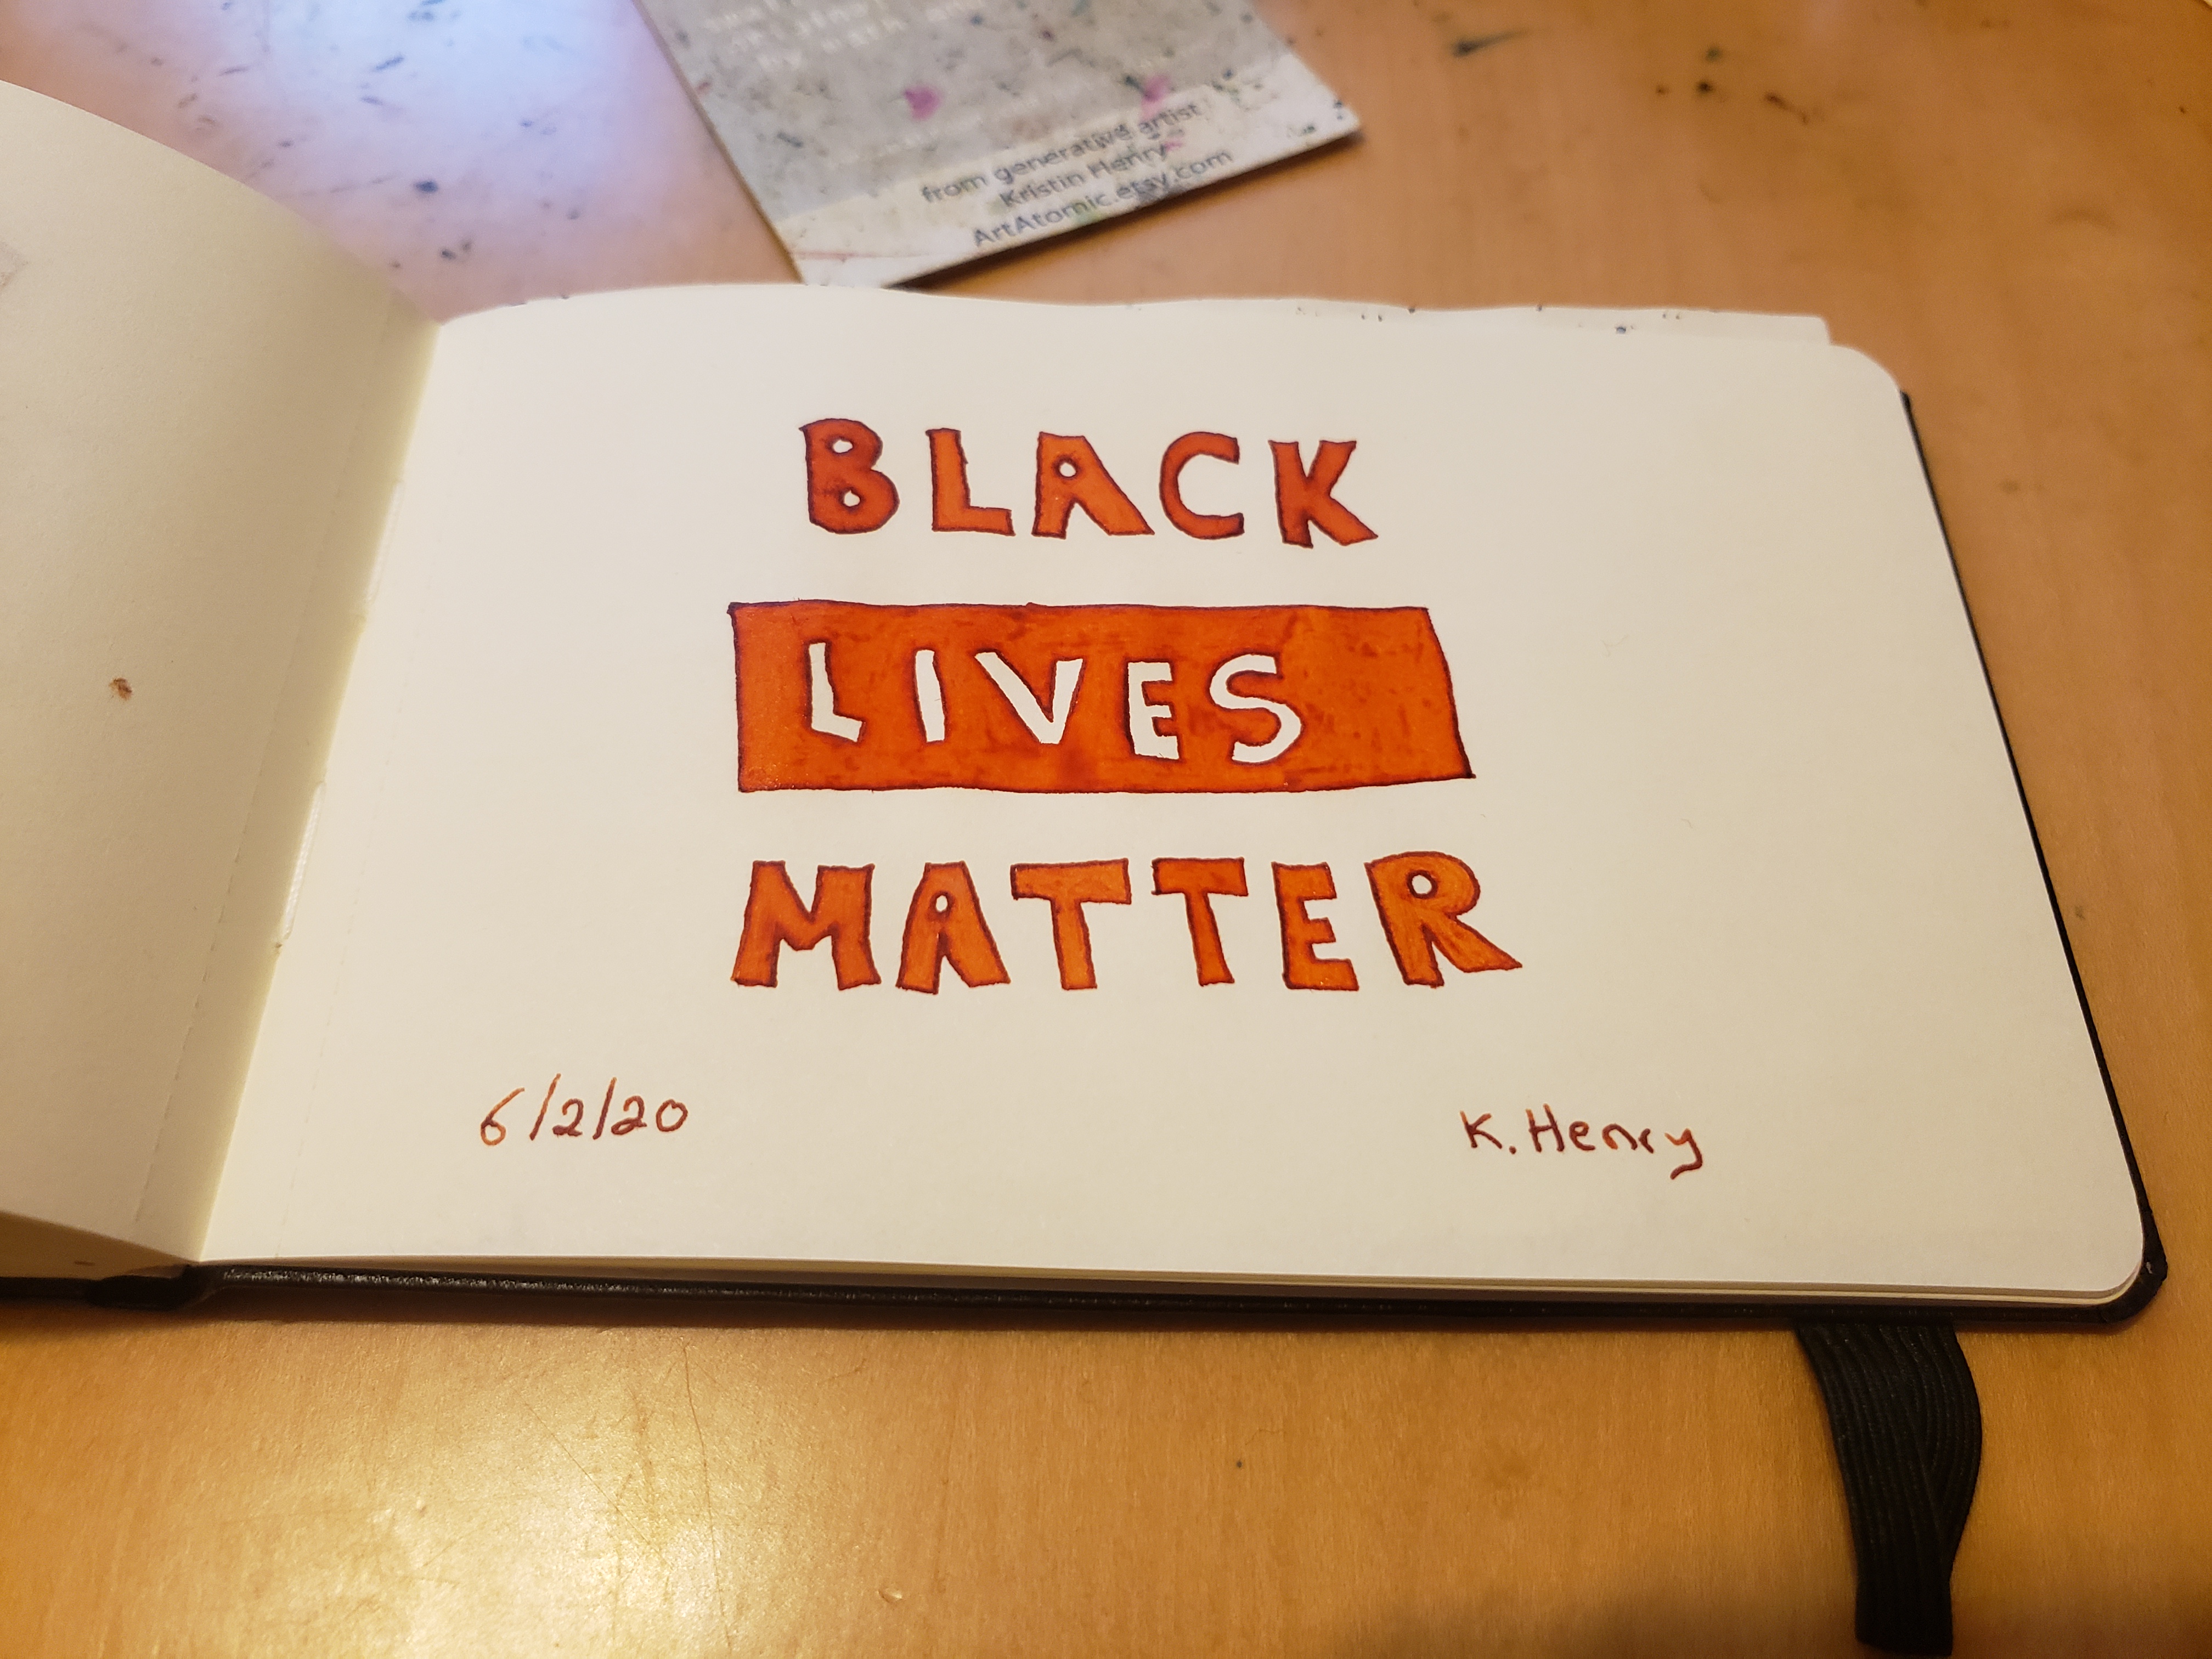 from generative artist
Kristin Henry
ArtAtomic.etsy.com
BLACK
LIVES
MATTER
6/2/20
K. Henry